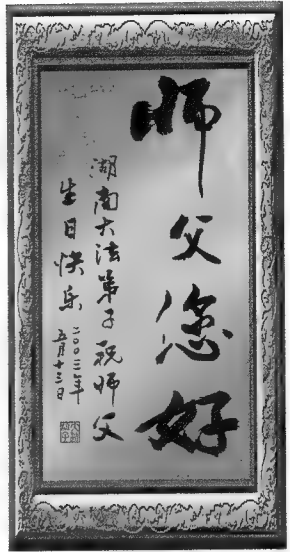 师父您好
湖南大法弟子祝师父
生日快乐
二〇〇二年
五月十三日